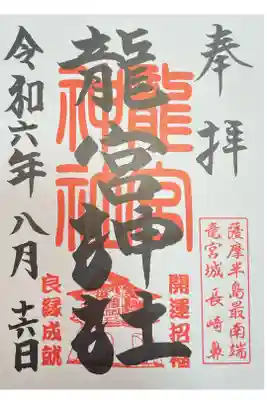 奉拝
薩摩半島最南端
竜宮城 長崎鼻
龍宮神社
龍宮神社
開運招福
良縁成就
令和六年 八月 十六日